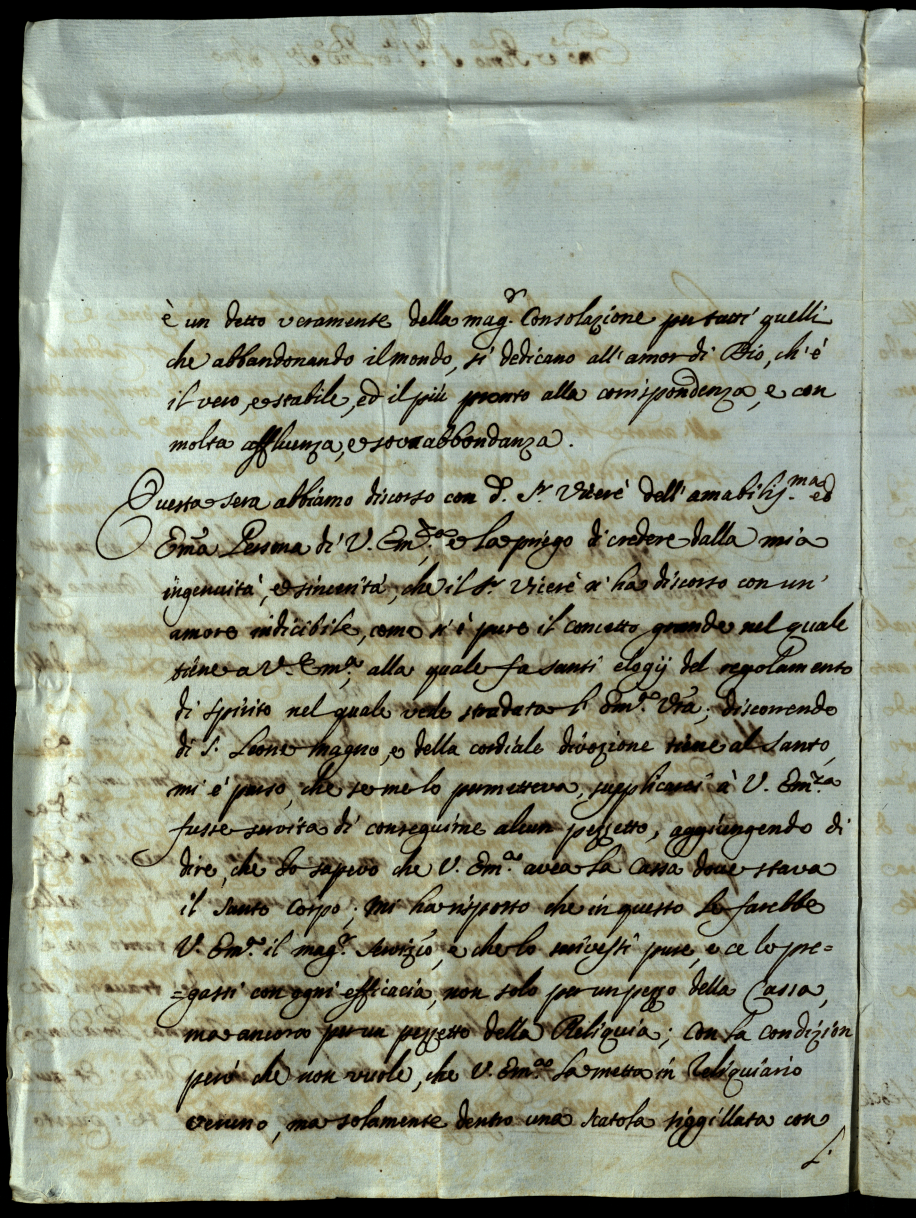 è un detto veramente della mag.r Consolazione per tutti quelli
che abbandonando il mondo, si dedicano all'amor di Dio, ch'è
il vero, e stabile, ed il più pronto alla corrispondenza, e con
molta affluenza, e sovrabbondanza.
Questa sera abbiamo discorso con d.o S.r Vicerè dell'amabiliss.ma ed
Em̃a Persona di V. Em.za, e la priego di credere dalla mia
ingenuità, e sincerità, che il S.r Vicerè n'ha discorso con un'
amore indicibile, come n'è pure il concetto grande nel quale
tiene a V.a Em.a, alla quale fa tanti elogij del regolamento
di spirito nel quale vede stradata l'Em.a Vr̃a, discorrendo
di S. Leone magno, e della cordiale divozione tiene al Santo,
mi è parso, che se me lo permetteva, supplicarei à V. Em.za
fusse servita di conseguirne alcun pezzetto, aggiungendo di
dire, che Io sapevo che V. Em.a avea la Cassa dove stava
il Santo Corpo; mi ha risposto che in questo le farebbe
V. Em.a il mag.r servizio, e che lo scrivessi pure, e ce lo pre=
=gassi con ogni efficacia, non solo per un pezzo della Cassa,
ma ancora per un pezzetto della Reliquia; con la condizion
però che non vuole, che V. Em.za la metta in Reliquiario
veruno, ma solamente dentro una scatola siggillata con